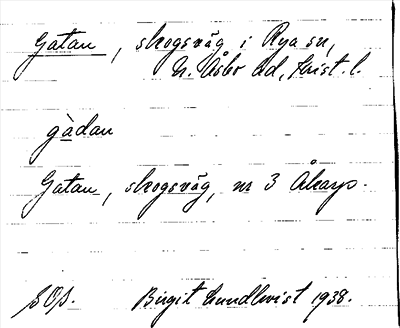 Gatan, skogsväg i Rya sn,
N. Åsbo hd, Krist. l.
gàdan
Gatan, skogsväg, nr 3 Åkarp.
Birgit Lundkvist 1938.